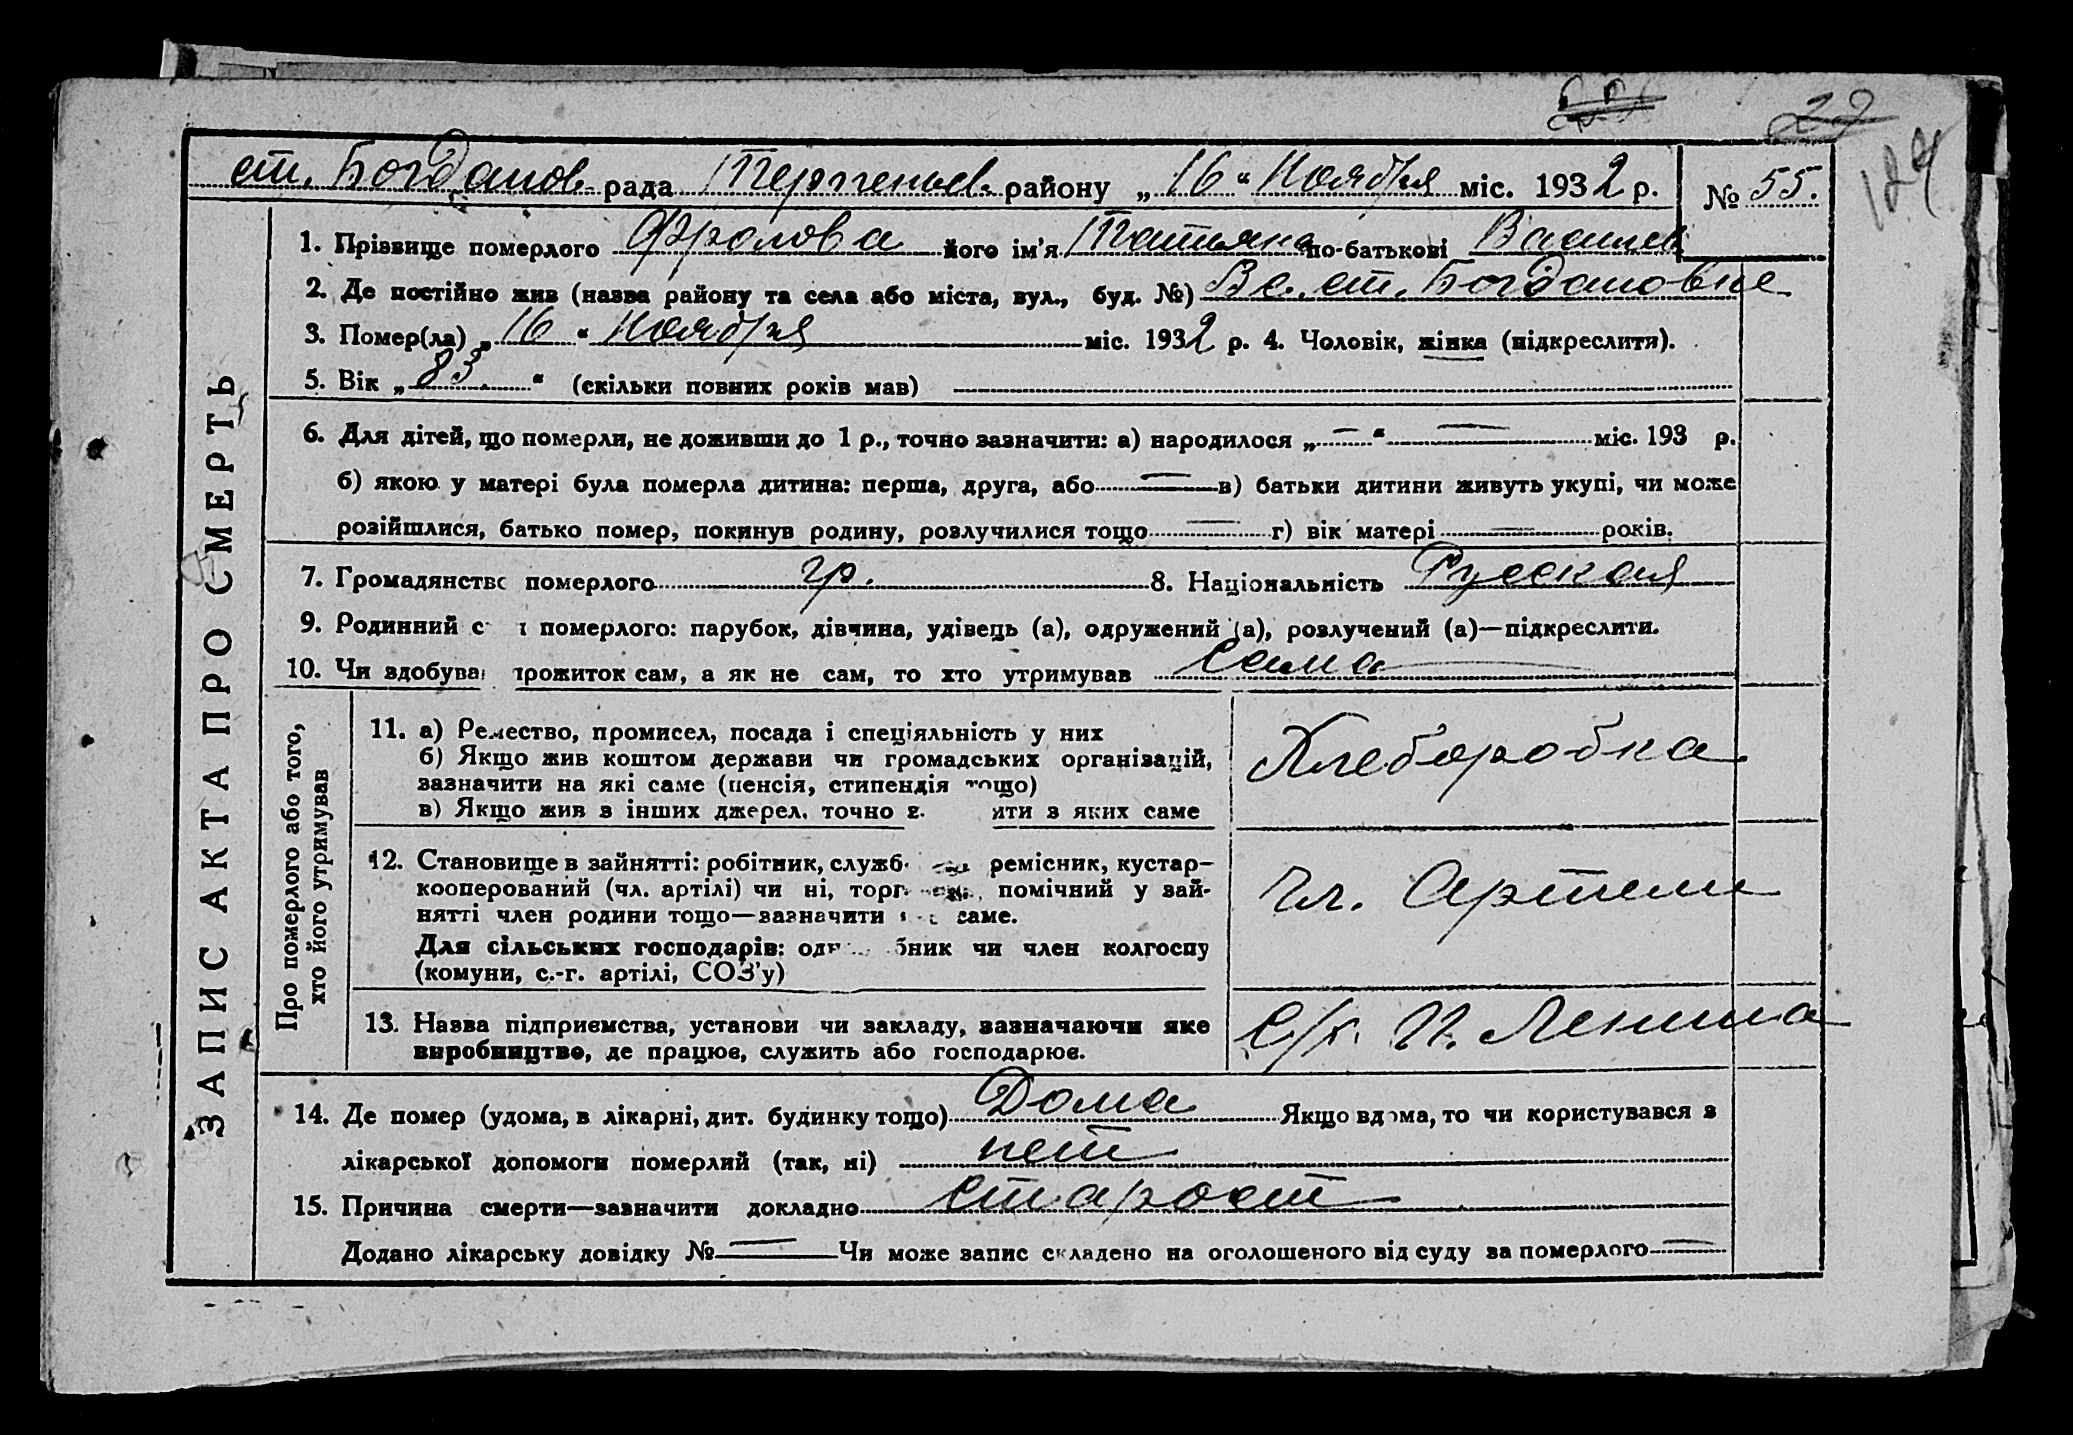 22
124
ст. Богданов. рада Терпеньев. району „16“ Ноября міс. 1932 р. № 55.
ЗАПИС АКТА ПРО СМЕРТЬ
1. Прізвище померлого Фролова його ім'я Татьяна по-батькові Васильев
2. Де постійно жив (назва району та села або міста, вул., буд. №) В с. ст. Богдановке
3. Помер(ла) „16“ Ноября міс. 1932 р. 4. Чоловік, жінка (підкреслити).
5. Вік „83.“ (скільки повних років мав)
6. Для дітей, що померли, не доживши до 1 р., точно зазначити: а) народилося „—“ — міс. 193 р.
б) якою у матері була померла дитина: перша, друга, або — в) батьки дитини живуть укупі, чи може
розійшлися, батько помер, покинув родину, розлучилися тощо — г) вік матері — років.
7. Громадянство померлого гр. 8. Національність Русская
9. Родинний с померлого: парубок, дівчина, удівець (а), одружений (а), розлучений (а)—підкреслити.
10. Чи здобував прожиток сам, а як не сам, то хто утримував Сама
Про померлого або того,
хто його утримував
11. а) Ремество, промисел, посада і спеціяльність у них
б) Якщо жив коштом держави чи громадських організацій,
зазначити на які саме (пенсія, стипендія тощо)
в) Якщо жив з інших джерел, точно з яких саме
Хлеборобка
12. Становище в зайнятті: робітник, служб ремісник, кустар-
кооперований (чл. артілі) чи ні, торг помічний у зай-
нятті член родини тощо—зазначити саме.
Для сільських господарів: одноосібник чи член колгоспу
(комуни, с.-г. артілі, СОЗ'у)
чл. Артели
13. Назва підприємства, установи чи закладу, зазначаючи яке
виробництво, де працює, служить або господарює.
С/х. И. Ленина
14. Де помер (удома, в лікарні, дит. будинку тощо) Дома Якщо вдома, то чи користувався з
лікарської допомоги померлий (так, ні) нет
15. Причина смерти—зазначити докладно старост
Додано лікарську довідку № — Чи може запис складено на оголошеного від суду за померлого —